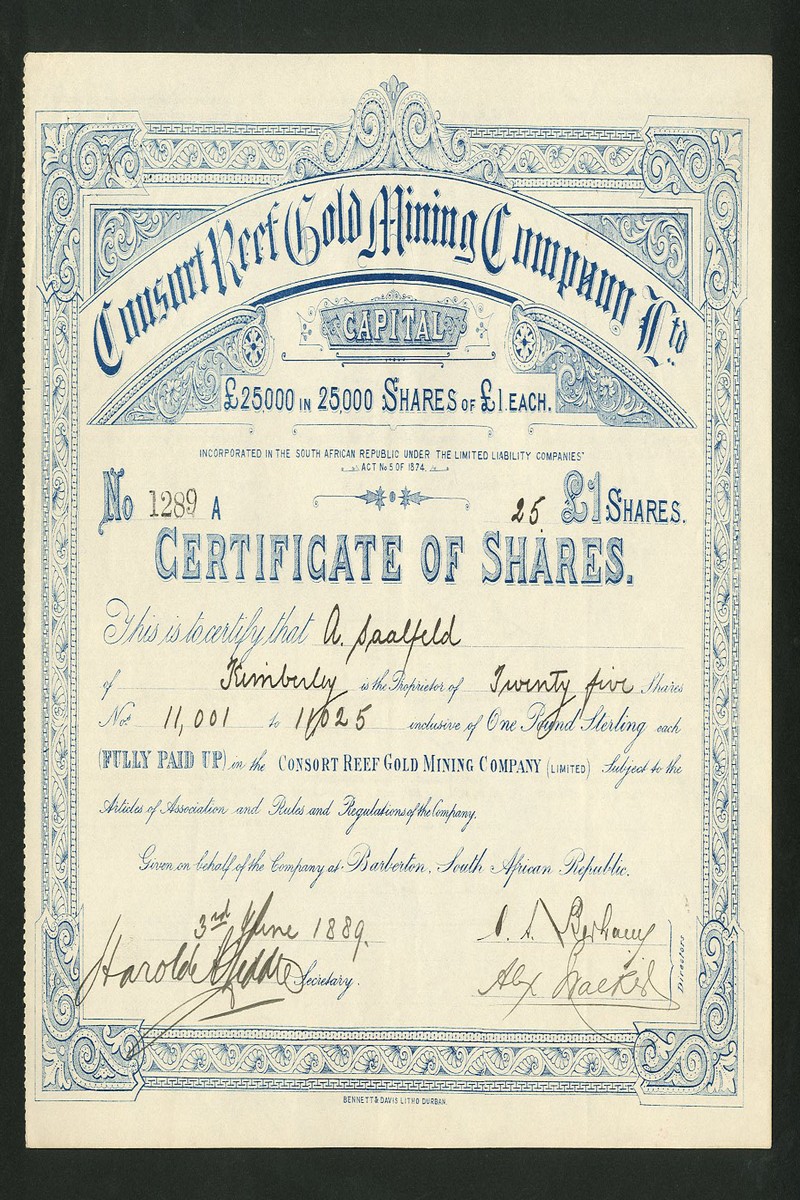 Consort Reef Gold Mining Company Ltd
CAPITAL
£25000 IN 25,000 SHARES OF £1.EACH.
INCORPORATED IN THE SOUTH AFRICAN REPUBLIC UNDER THE LIMITED LIABILITY COMPANIES'
ACT No 5 OF 1874.
No 1289 A 25 £1 SHARES.
CERTIFICATE OF SHARES.
This is to certify that A. Saalfeld
of Kimberley is the Proprietor of Twenty five Shares
Nos 11,001 to 11025 inclusive of One Pound Sterling each
(FULLY PAID UP) in the CONSORT REEF GOLD MINING COMPANY (LIMITED) Subject to the
Articles of Association and Rules and Regulations of the Company.
Given on behalf of the Company at Barberton, South African Republic.
3rd June 1889.
Harold Secretary.
Alex
Directors
BENNETT & DAVIS LITHO DURBAN.